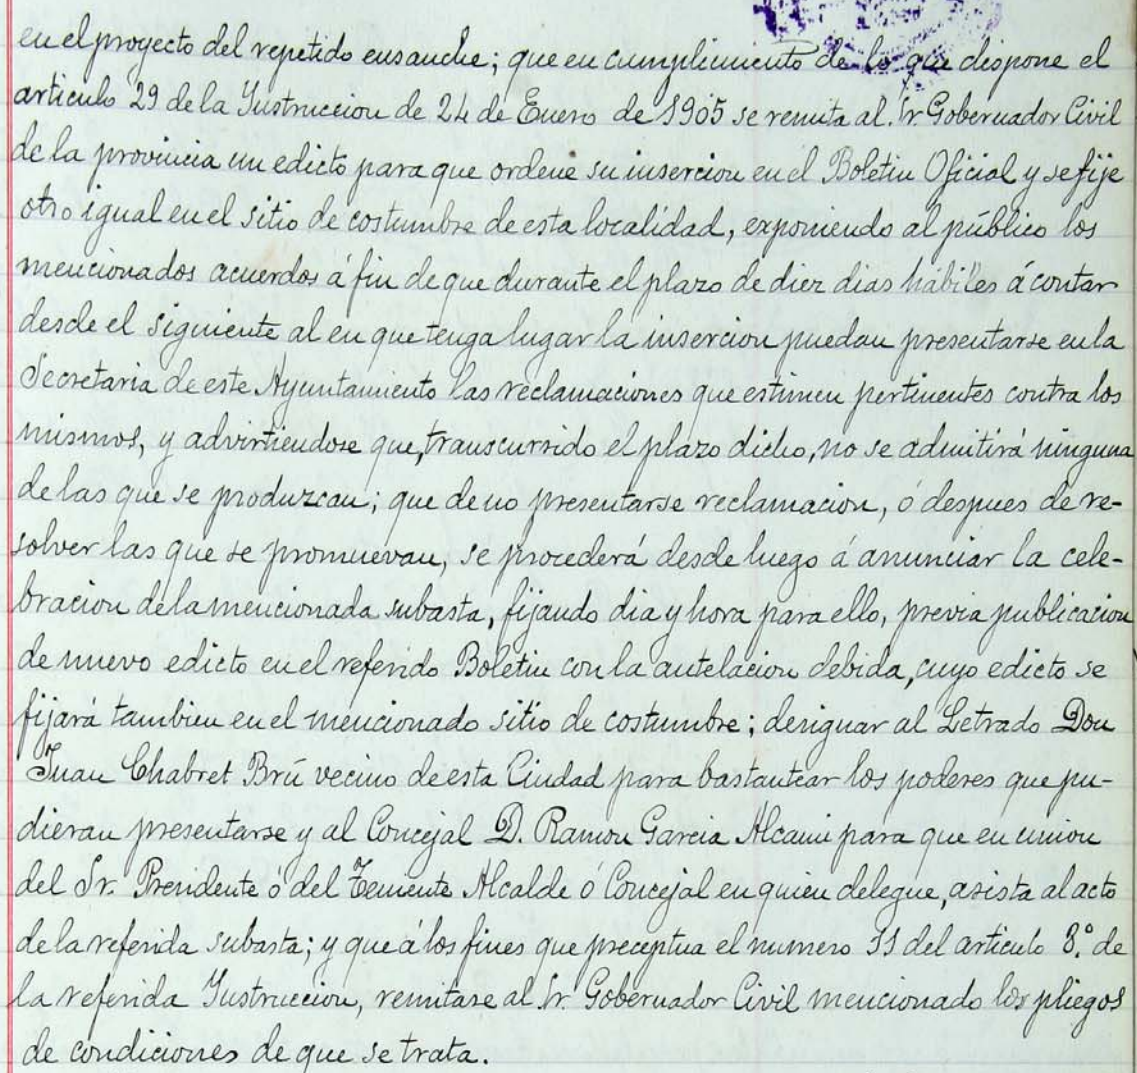 en el proyecto del repetido ensanche; que en cumplimiento de lo que dispone el
articulo 29 de la Instruccion de 24 de Enero de 1905 se remita al Sr. Gobernador Civil
de la provincia un edicto para que ordene su insercion en el Boletin Oficial y se fije
otro igual en el sitio de costumbre de esta localidad, exponiendo al público los
mencionados acuerdos á fin de que durante el plazo de diez dias hábiles á contar
desde el siguiente al en que tenga lugar la insercion puedan presentarse en la
Secretaria de este Ayuntamiento las reclamaciones que estimen pertinentes contra los
mismos, y advirtiendose que, transcurrido el plazo dicho, no se admitirá ninguna
de las que se produzcan; que de no presentarse reclamacion, ó despues de re-
solver las que se promuevan, se procederá desde luego á anunciar la cele-
bracion de la mencionada subasta, fijando dia y hora para ello, previa publicacion
de nuevo edicto en el referido Boletin con la antelacion debida, cuyo edicto se
fijará tambien en el mencionado sitio de costumbre; designar al Letrado Don
Juan Chabret Brú vecino de esta Ciudad para bastantear los poderes que pu-
dieran presentarse y al Concejal D. Ramon Garcia Alcami para que en union
del Sr. Presidente ó del Teniente Alcalde ó Concejal en quien delegue, asista al acto
de la referida subasta; y que á los fines que preceptua el numero 11 del articulo 8.º de
la referida Instruccion, remitase al Sr. Gobernador Civil mencionado los pliegos
de condiciones de que se trata.